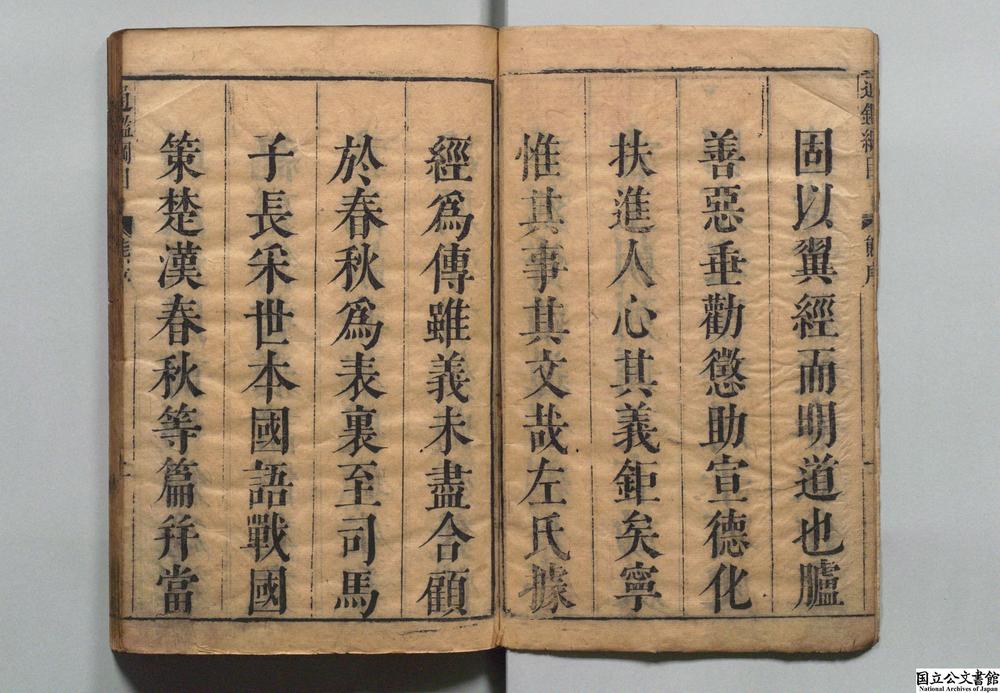 固以翼經而明道也臚
善惡垂勸懲助宣德化
扶進人心其義鉅矣寧
惟其事其文哉左氏據
經爲傳雖義未盡合顧
於春秋爲表裏至司馬
子長采世本國語戰國
策楚漢春秋等篇幷當
通鑑綱目
熊序
通鑑綱目
熊序
国立公文書館
National Archives of Japan